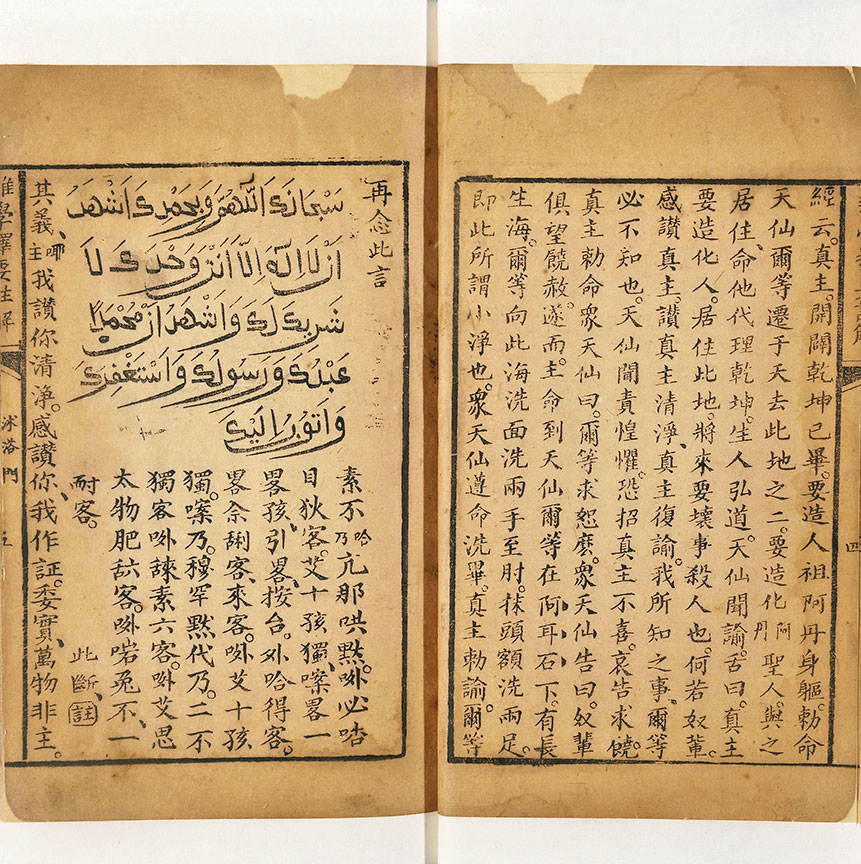 經云。真主。開闢乾坤已畢。要造人祖阿丹身軀。勅命
天仙爾等遷于天去此地之二。要造化阿丹聖人。與之
居住、命他代理乾坤。生人弘道。天仙聞諭。舌曰。真主
要造化人。居住此地。將來要壞事殺人也。何若奴輩
感讃真主。讃真主清淨。真主復諭。我所知之事、爾等
必不知也。天仙聞責惶懼。恐招真主不喜。哀告求饒
真主勅命衆天仙曰。爾等求恕麽。衆天仙告曰。奴輩
俱望饒赦。遂而主。命到天仙爾等在阿耳石下。有長
生海。爾等向此海洗面洗兩手至肘。抹頭額洗兩足。
即此所謂小淨也。衆天仙遵命洗畢。真主勅諭。爾等
四
再念此言
سُبْحَانَكَ اَللّٰهُمَّ وَبِحَمْدِكَ اَشْهَدُ
اَنْ لَا اِلٰهَ اِلَّا اَنْتَ وَحْدَكَ لَا
شَرِيكَ لَكَ وَاَشْهَدُ اَنَّ مُحَمَّدًا
عَبْدُكَ وَرَسُولُكَ وَاَسْتَغْفِرُكَ
وَاَتُوبُ اِلَيْكَ
素不哈乃亢那哄㸃。㖿必嗒
目狄客。艾十孩獨、㗫畧一
畧孩、引畧、按台。外哈得客。
畧佘客、來客。㖿艾十孩
獨。㗫乃。穆罕㸃代乃。二不
獨客㖿諫素六客。㖿艾思
太物肥客。㖿喏兎不、一
耐客。 此斷、註
其義、主我讃你清淨。感讃你、我作証。委實、萬物非主。
沐洛門 五